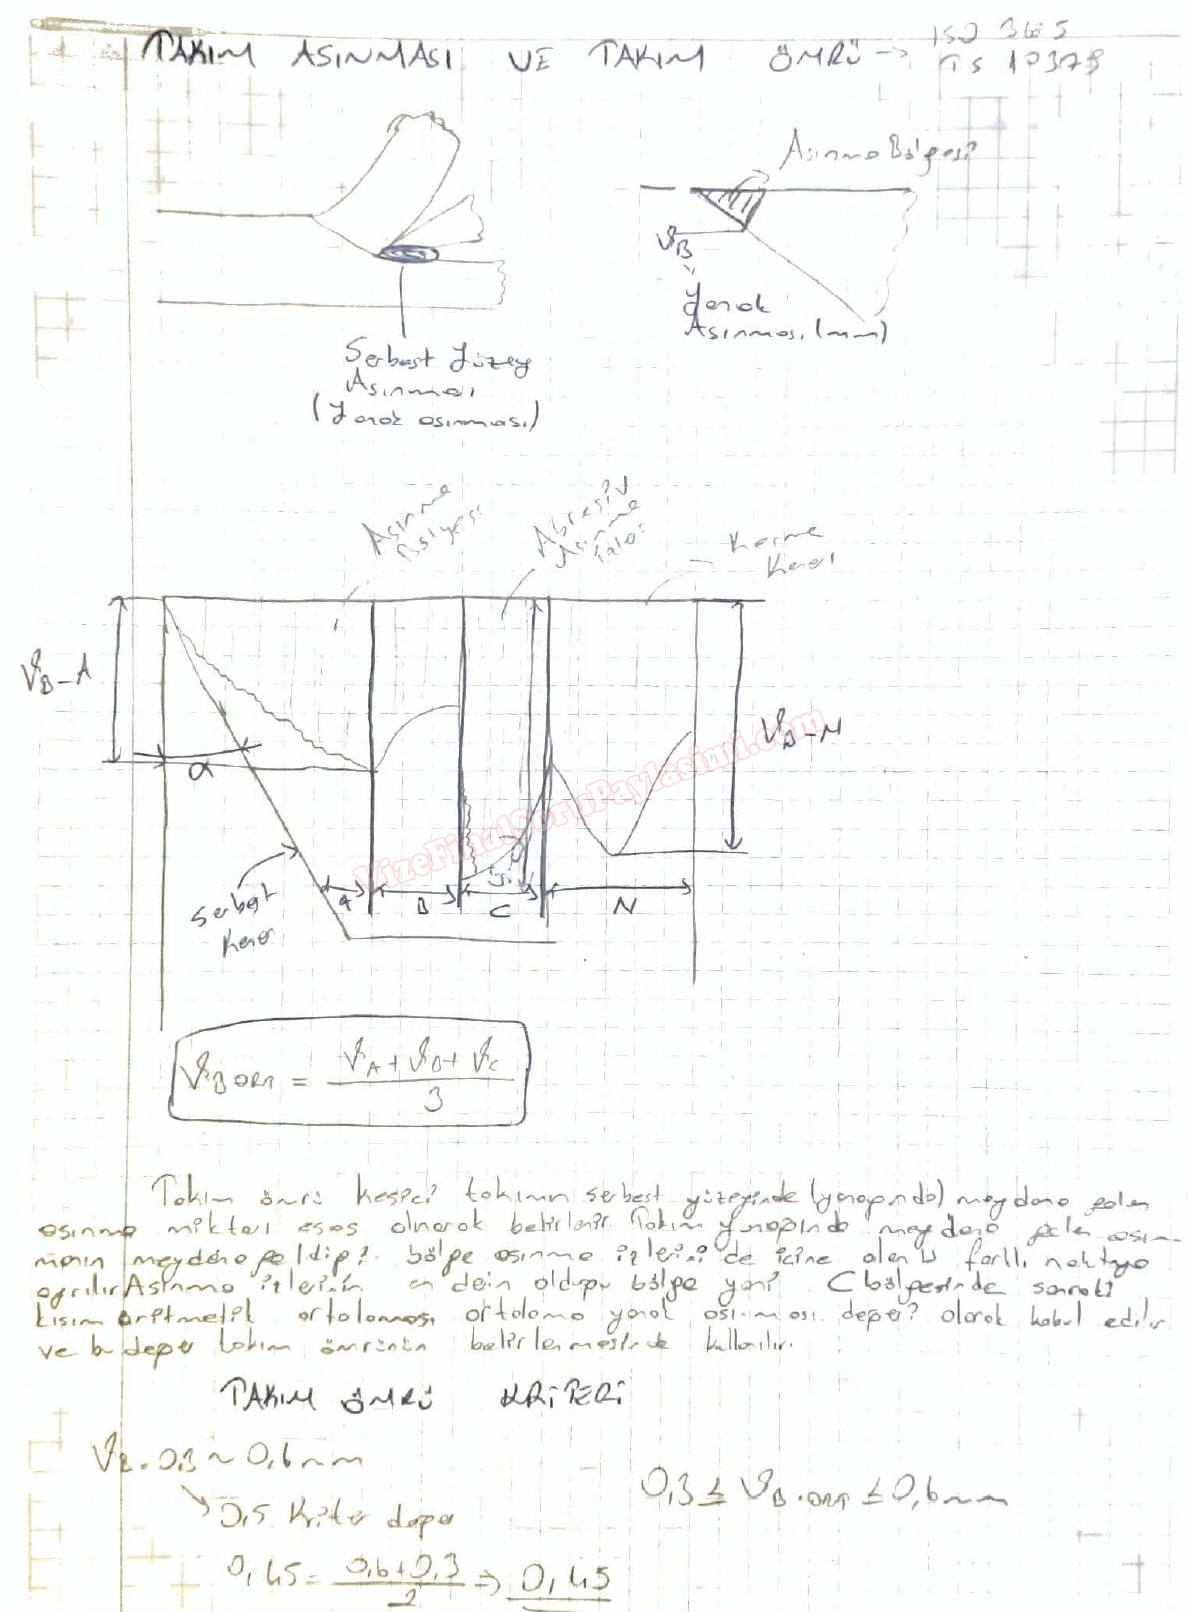 TAKIM AŞINMASI VE TAKIM ÖMRÜ → ISO 3685
TS 10379
Aşınma Bölgesi
VB
Yanak
Aşınması (mm)
Serbest Yüzey
Aşınması
(Yanak aşınması)
Aşınma
Abresiv
Aşınma
İzleri
Kesme
Kenarı
VB-A
α
VB-N
VizeFinalSoruPaylasimi.com
A B C N
Serbest
Kenar
VB ORT = VA + VB + VC / 3
Takım ömrü kesici takımın serbest yüzeyinde (yanağında) meydana gelen
aşınma miktarı esas alınarak belirlenir. Takım yanağında meydana gelen aşın-
manın meydana geldiği bölge aşınma izlerini de içine alan 4 farklı noktaya
ayrılır. Aşınma izlerinin en derin olduğu bölge yani C bölgesinde sonraki
kısım aritmetik ortalaması ortalama yanak aşınması değeri olarak kabul edilir
ve bu değer takım ömrünün belirlenmesinde kullanılır.
TAKIM ÖMRÜ KRİTERİ
VB. 0,3 ~ 0,6 mm
0,3 ≤ VB.ORT ≤ 0,6 mm
0,5 Kriter değer
0,45 = 0,6+0,3 / 2 ⇒ 0,45